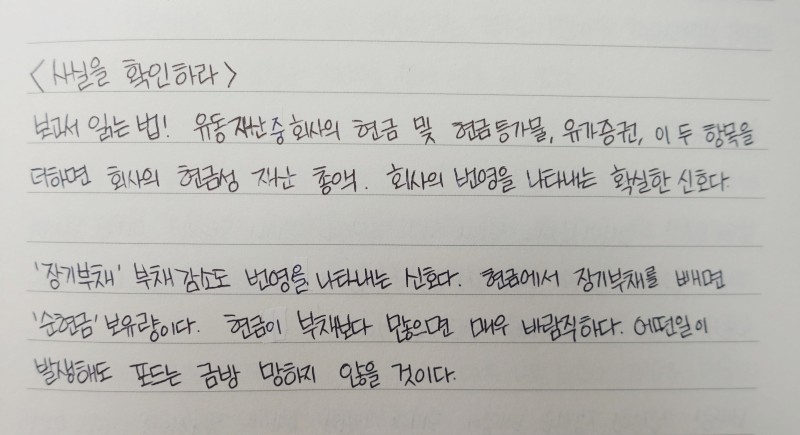 <사실을 확인하라>
보고서 읽는 법! 유동재산 중 회사의 현금 및 현금등가물, 유가증권, 이 두 항목을
더하면 회사의 현금성 자산 총액. 회사의 번영을 나타내는 확실한 신호다.
'장기부채' 부채감소도 번영을 나타내는 신호다. 현금에서 장기부채를 빼면
'순현금' 보유량이다. 현금이 부채보다 많으면 매우 바람직하다. 어떤일이
발생해도 포드는 금방 망하지 않을 것이다.